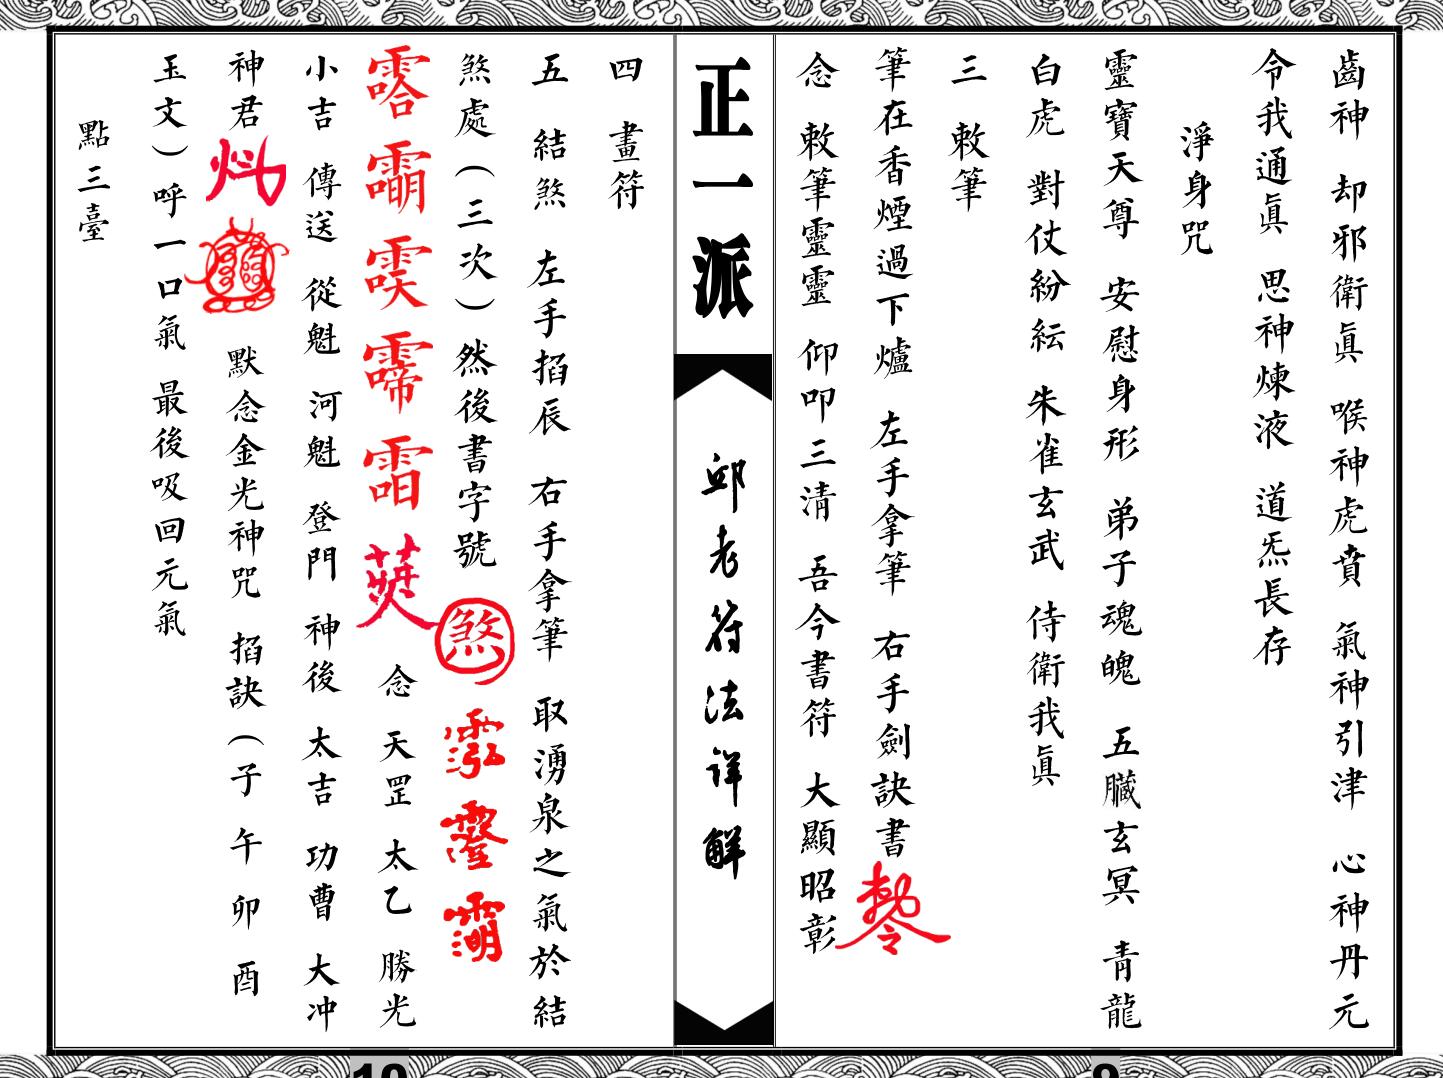 齒神 却邪衛眞 喉神虎賁 氣神引津 心神丹元
令我通眞 思神煉液 道炁長存
淨身咒
靈寶天尊 安慰身形 弟子魂魄 五臟玄冥 青龍
白虎 對仗紛紜 朱雀玄武 侍衛我眞
三 敕筆
筆在香煙過下爐 左手拿筆 右手劍訣書
念 敕筆靈靈 仰叩三清 吾今書符 大顯昭彰
正一派
邱老符法詳解
四 畫符
五 結煞 左手掐辰 右手拿筆 取湧泉之氣於結
煞處(三次)然後書字號 煞
念 天罡 太乙 勝光
小吉 傳送 從魁 河魁 登門 神後 太吉 功曹 大冲
神君 默念金光神咒 掐訣(子 午 卯 酉
玉文)呼一口氣 最後吸回元氣
點三臺
10
9